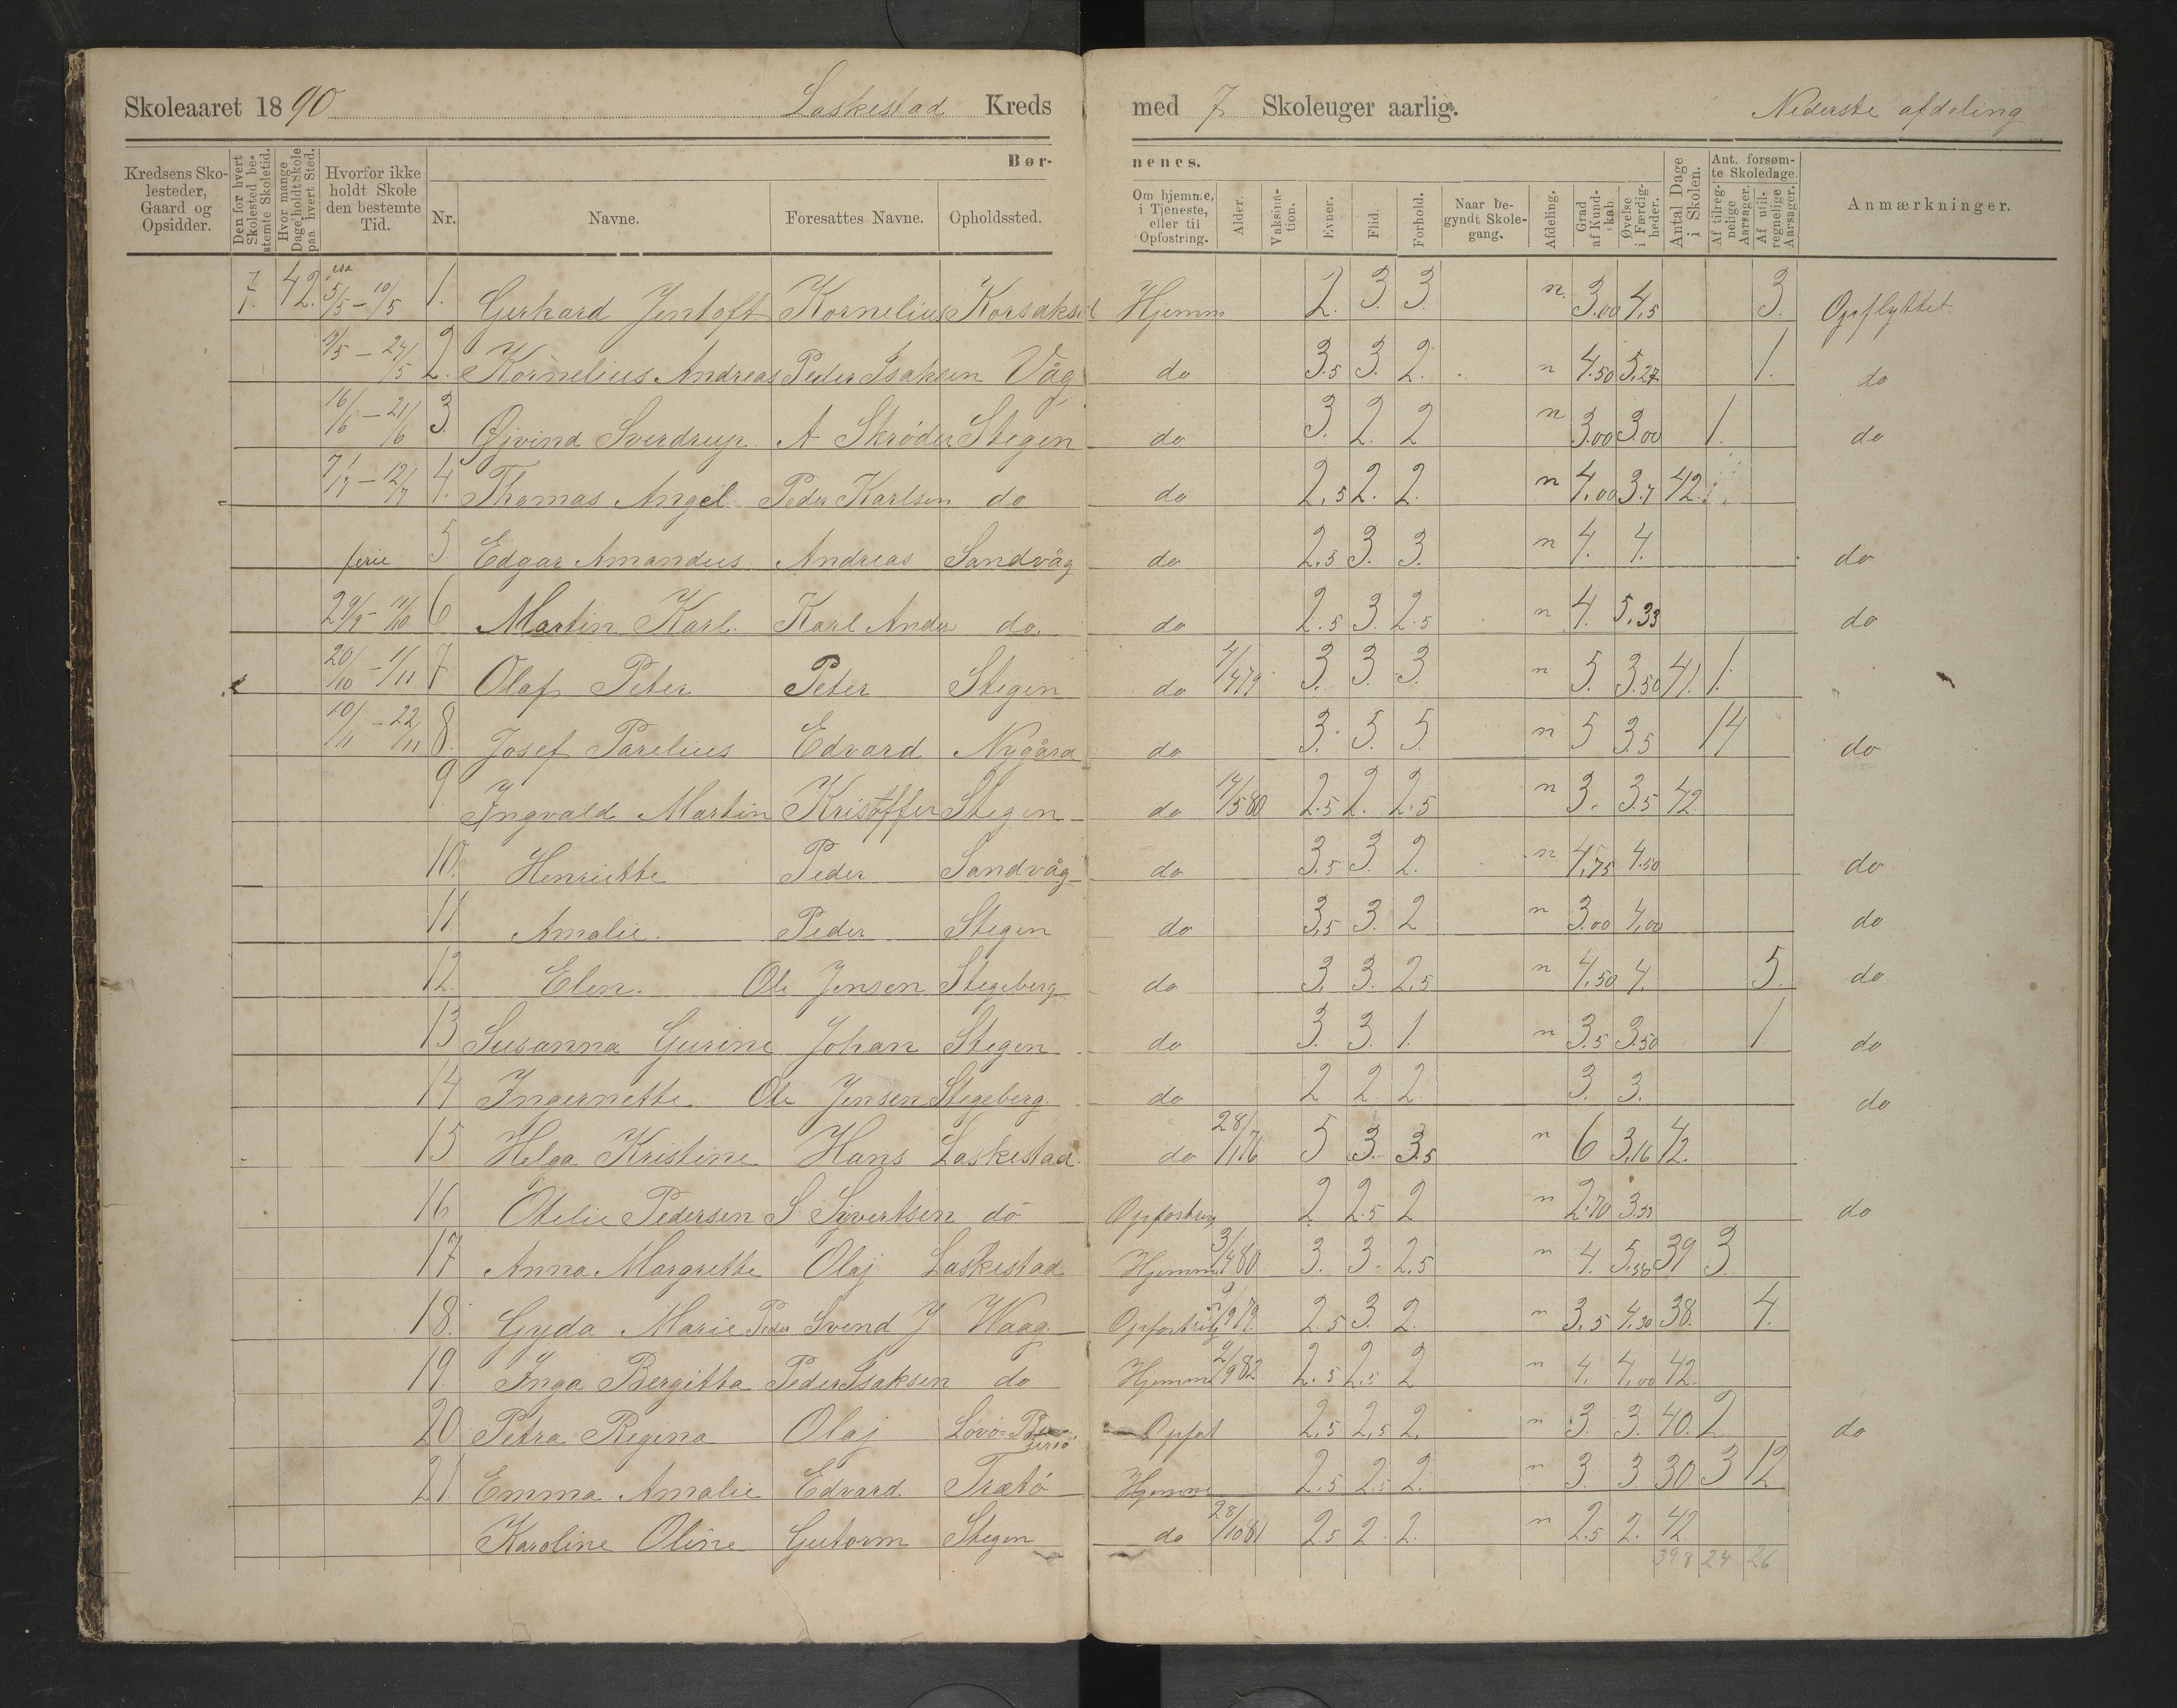 Skoleaaret 1890 Laskestad Kreds med 7 Skoleuger aarlig. Nederste afdeling
Kredsens Skolesteder, Gaard og Opsidder. Den for hvert Skolested bestemte Skoletid. Hvor mange Dage holdt Skole paa hvert Sted. Hvorfor ikke holdt Skole den bestemte Tid. Børnenes.
Nr. Navne. Foresattes Navne. Opholdssted. Om hjemme, i Tjeneste, eller til Opfostring. Alder. Vaksination. Evner. Flid. Forhold. Naar begyndt Skolegang. Afdeling. Grad af Kundskab. Øvelse i Færdigheder. Antal Dage i Skolen. Ant. forsømte Skoledage. Af tilregnelige Aarsager. Af utilregnelige Aarsager. Anmærkninger.
7. 42. 5/5 – 10/5 1. Gerhard Jentoft Kornelius Hjemm 2. 3. 3. n. 3.00 4,5 3. Opflyttet
– 24/5 2. Kornelius Andreas Peder Isaksen Våg do 3.5 3. 2. n 4.50 5,27 1. do
16/6 – 21/6 3. Øjvind Sverdrup A Skrøder Stegen do 3. 2. 2 n 3.00 3.00 1. do
7/7 – 12/7 4. Thomas Angel Peder Karlsen do do 2,5 2. 2. n 4.00 3.7 42.
ferie 5. Edgar Amandus Andreas Sandvåg do 2.5 3. 3. n 4. 4. do
29/9 – 11/10 6 Martin Karl. Karl Ander do. do 2.5 3. 2.5 n 4. 5,33 do
20/10 – 1/11 7 Olaf Peter Peter Stegen do 3. 3. 3. n 5. 3.50 41. 1.
10/11 – 22/11 8. Josef Parelius Edvard Nygård do 3. 5. 5. n 5 3.5 14 do
9 Ingvald Martin Kristoffer Stegen do 14/5 80 2.5 2. 2.5 n 3. 3.5 42.
10. Henriette Peder Sandvåg do 3.5 3. 2. n 4,75 4.50 do
11 Amalie. Peder Stegen do 3,5 3. 2 n 3.00 4,00 do
12. Elen. Ole Jensen Stegeberg do 3. 3. 2,5 n 4,50 4. 5. do
13 Susanna Gurine Johan Stegen do 3. 3. 1. n 3.5 3.50 1 do
14 Ingernette Ole Jensen Stegeberg. do 2 2. 2. 3. 3. do
15 Helga Kristine Hans Laskestad. do 28/1 76 5 3. 3.5 n 6 3,16 42.
16 Otelie Pedersen S Sivertsen do Opfostring 2 2.5 2 n 2.70 3.33 do
17 Anna Margrette Olaj Laskestad Hjemm 3/4 80 3. 3. 2,5 n 4. 39 3.
18. Gyda Marie Peder Svend J Waag. Opfostring 2.5 3. 2. n 3,5 4.30 38. 4.
19. Inga Bergitta Peder Isaksen do Hjemme 2/9 82 2.5 2,5 2 n 4. 4,00 42.
20 Petra Regina Olaj Opfot 2,5 2,5 2. n 3. 3. 40. 2 do
21. Emma Amalie Edvard Trætö Hjemme 2.5 2.5 2. n 3. 3 30. 3 12
Karoline Oline Gutorm Stegen do 28/10 81 2.5 2. 2. n 2.5 2. 42
398 24 26